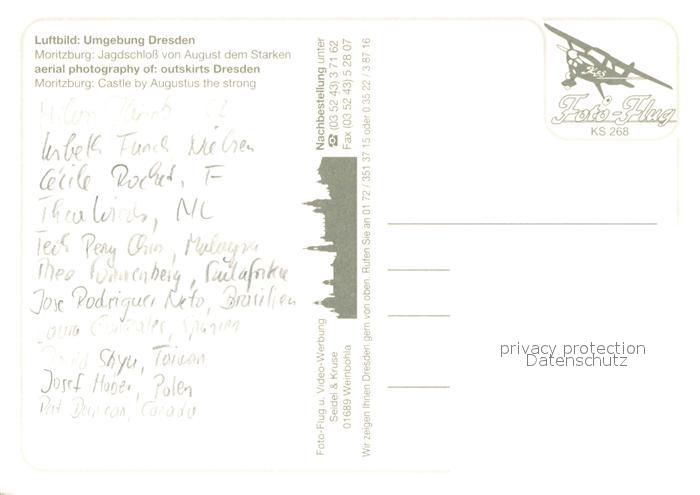 Luftbild: Umgebung Dresden
Moritzburg: Jagdschloß von August dem Starken
aerial photography of: outskirts Dresden
Moritzburg: Castle by Augustus the strong
NL
Lisbeth Funch Nielsen
Cécile Rochet, F
NL
Teck Peng Chin, Malaysia
Theo Sonnenberg, Südafrika
Jose Rodrigues Neto, Brasilien
Laura Gonzales, Spanien
Shyu, Taiwan
Josef Huber, Polen
Pat Duncan, Canada
Nachbestellung unter
☎ (03 52 43) 3 71 62
Fax (03 52 43) 5 28 07
Foto-Flug u. Video-Werbung
Seidel & Kruse
01689 Weinböhla
Wir zeigen Ihnen Dresden gern von oben. Rufen Sie an 01 72 / 351 37 15 oder 0 35 22 / 3 87 16
Foto-Flug
KS 268
privacy protection
Datenschutz